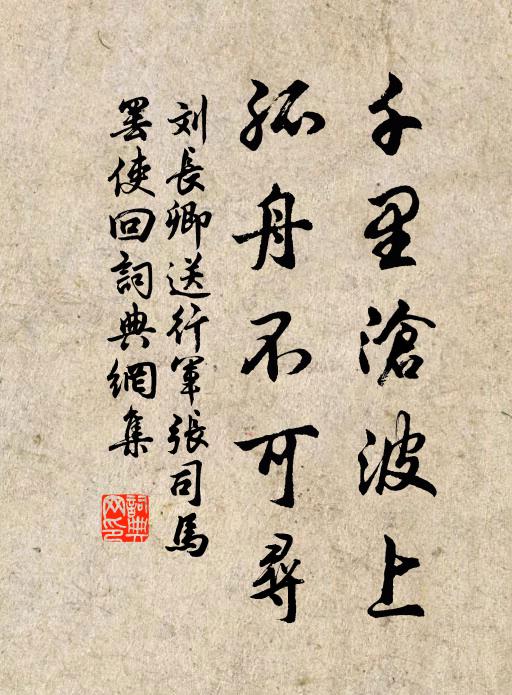 千里滄波上
孤舟不可尋
刘長卿送行軍張司馬
罷使回詞典網集
詞典
网印